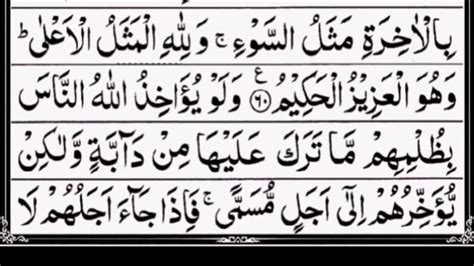 بِالْاٰخِرَةِ مَثَلُ السَّوْءِ ۚ وَلِلّٰهِ الْمَثَلُ الْاَعْلٰى ؕ
وَهُوَ الْعَزِيْزُ الْحَكِيْمُ ﴿۶۰﴾ ع وَلَوْ يُؤَاخِذُ اللّٰهُ النَّاسَ
بِظُلْمِهِمْ مَّا تَرَكَ عَلَيْهَا مِنْ دَآبَّةٍ وَّلٰكِنْ
يُّؤَخِّرُهُمْ اِلٰٓى اَجَلٍ مُّسَمًّى ۚ فَاِذَا جَآءَ اَجَلُهُمْ لَا